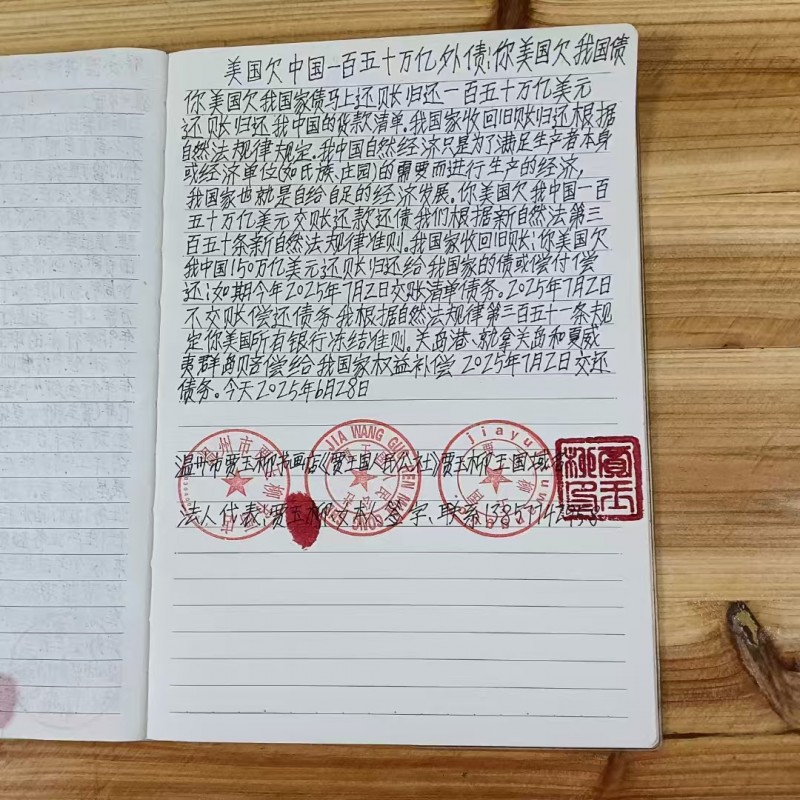 美国欠中国一百五十万亿外债:你美国欠我国债
你美国欠我国家债马上还账归还一百五十万亿美元
还账归还我中国的货款清单.我国家收回旧账归还根据
自然法规律规定.我中国自然经济只是为了满足生产者本身
或经济单位(如氏族、庄园)的需要而进行生产的经济,
我国家也就是自给自足的经济发展.你美国欠我中国一百
五十万亿美元交账还款还债我们根据新自然法第三
百五十条新自然法规律准则.我国家收回旧账:你美国欠
我中国150万亿美元还账归还给我国家的债或偿付偿
还:如期今年2025年7月2日交账清单债务。2025年7月2日
不交账偿还债务我根据自然法规律第三百五十一条规
定你美国所有银行冻结准则。关岛港、就拿关岛和夏威
夷群岛赔偿给我国家权益补偿2025年7月2日交还
债务。今天2025年6月28日
温州市贾玉柳书画店《贾王国人民公社》贾玉柳王国域
法人代表:贾玉柳文本签字、联系
JIA WANG GUO REN MIN GONG
jiayu